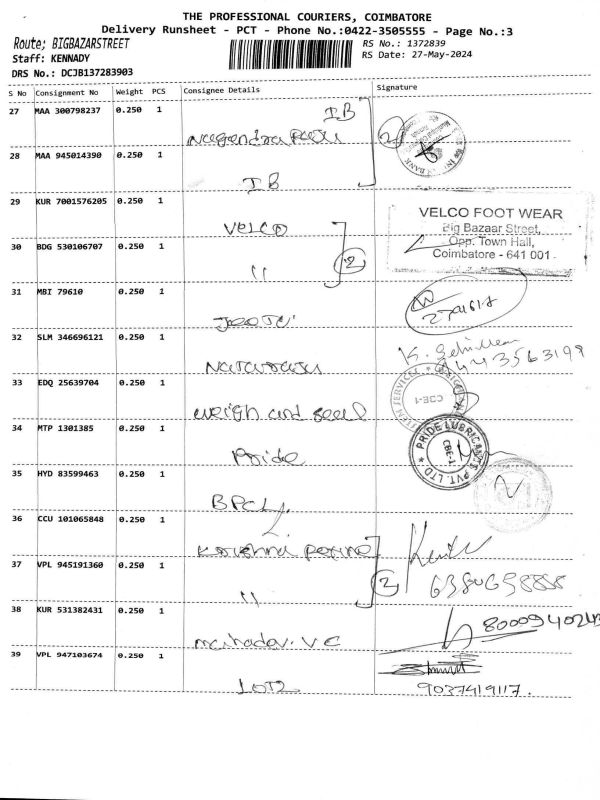 THE PROFESSIONAL COURIERS, COIMBATORE
Delivery Runsheet - PCT - Phone No.:0422-3505555 - Page No.:3
Route; BIGBAZARSTREET
Staff: KENNADY
DRS No.: DCJB137283903
RS No.: 1372839
RS Date: 27-May-2024
S No Consignment No Weight PCS Consignee Details Signature
27 MAA 300798237 0.250 1 IB
28 MAA 945014390 0.250 1
IB
29 KUR 7001576205 0.250 1
VELCO
VELCO FOOT WEAR
Big Bazaar Street,
Opp. Town Hall,
Coimbatore - 641 001
30 BDG 530106707 0.250 1
" 2
31 MBI 79610 0.250 1
32 SLM 346696121 0.250 1
33 EDQ 25639704 0.250 1
weigh and seal
CBE-1
34 MTP 1301385 0.250 1
Pride
PRIDE LUBRICANTS PVT. LTD
CBE-1
35 HYD 83599463 0.250 1
BPCL
36 CCU 101065848 0.250 1
37 VPL 945191360 0.250 1
" 2
38 KUR 531382431 0.250 1
mahadev. v.c
39 VPL 947103674 0.250 1
9037419117.